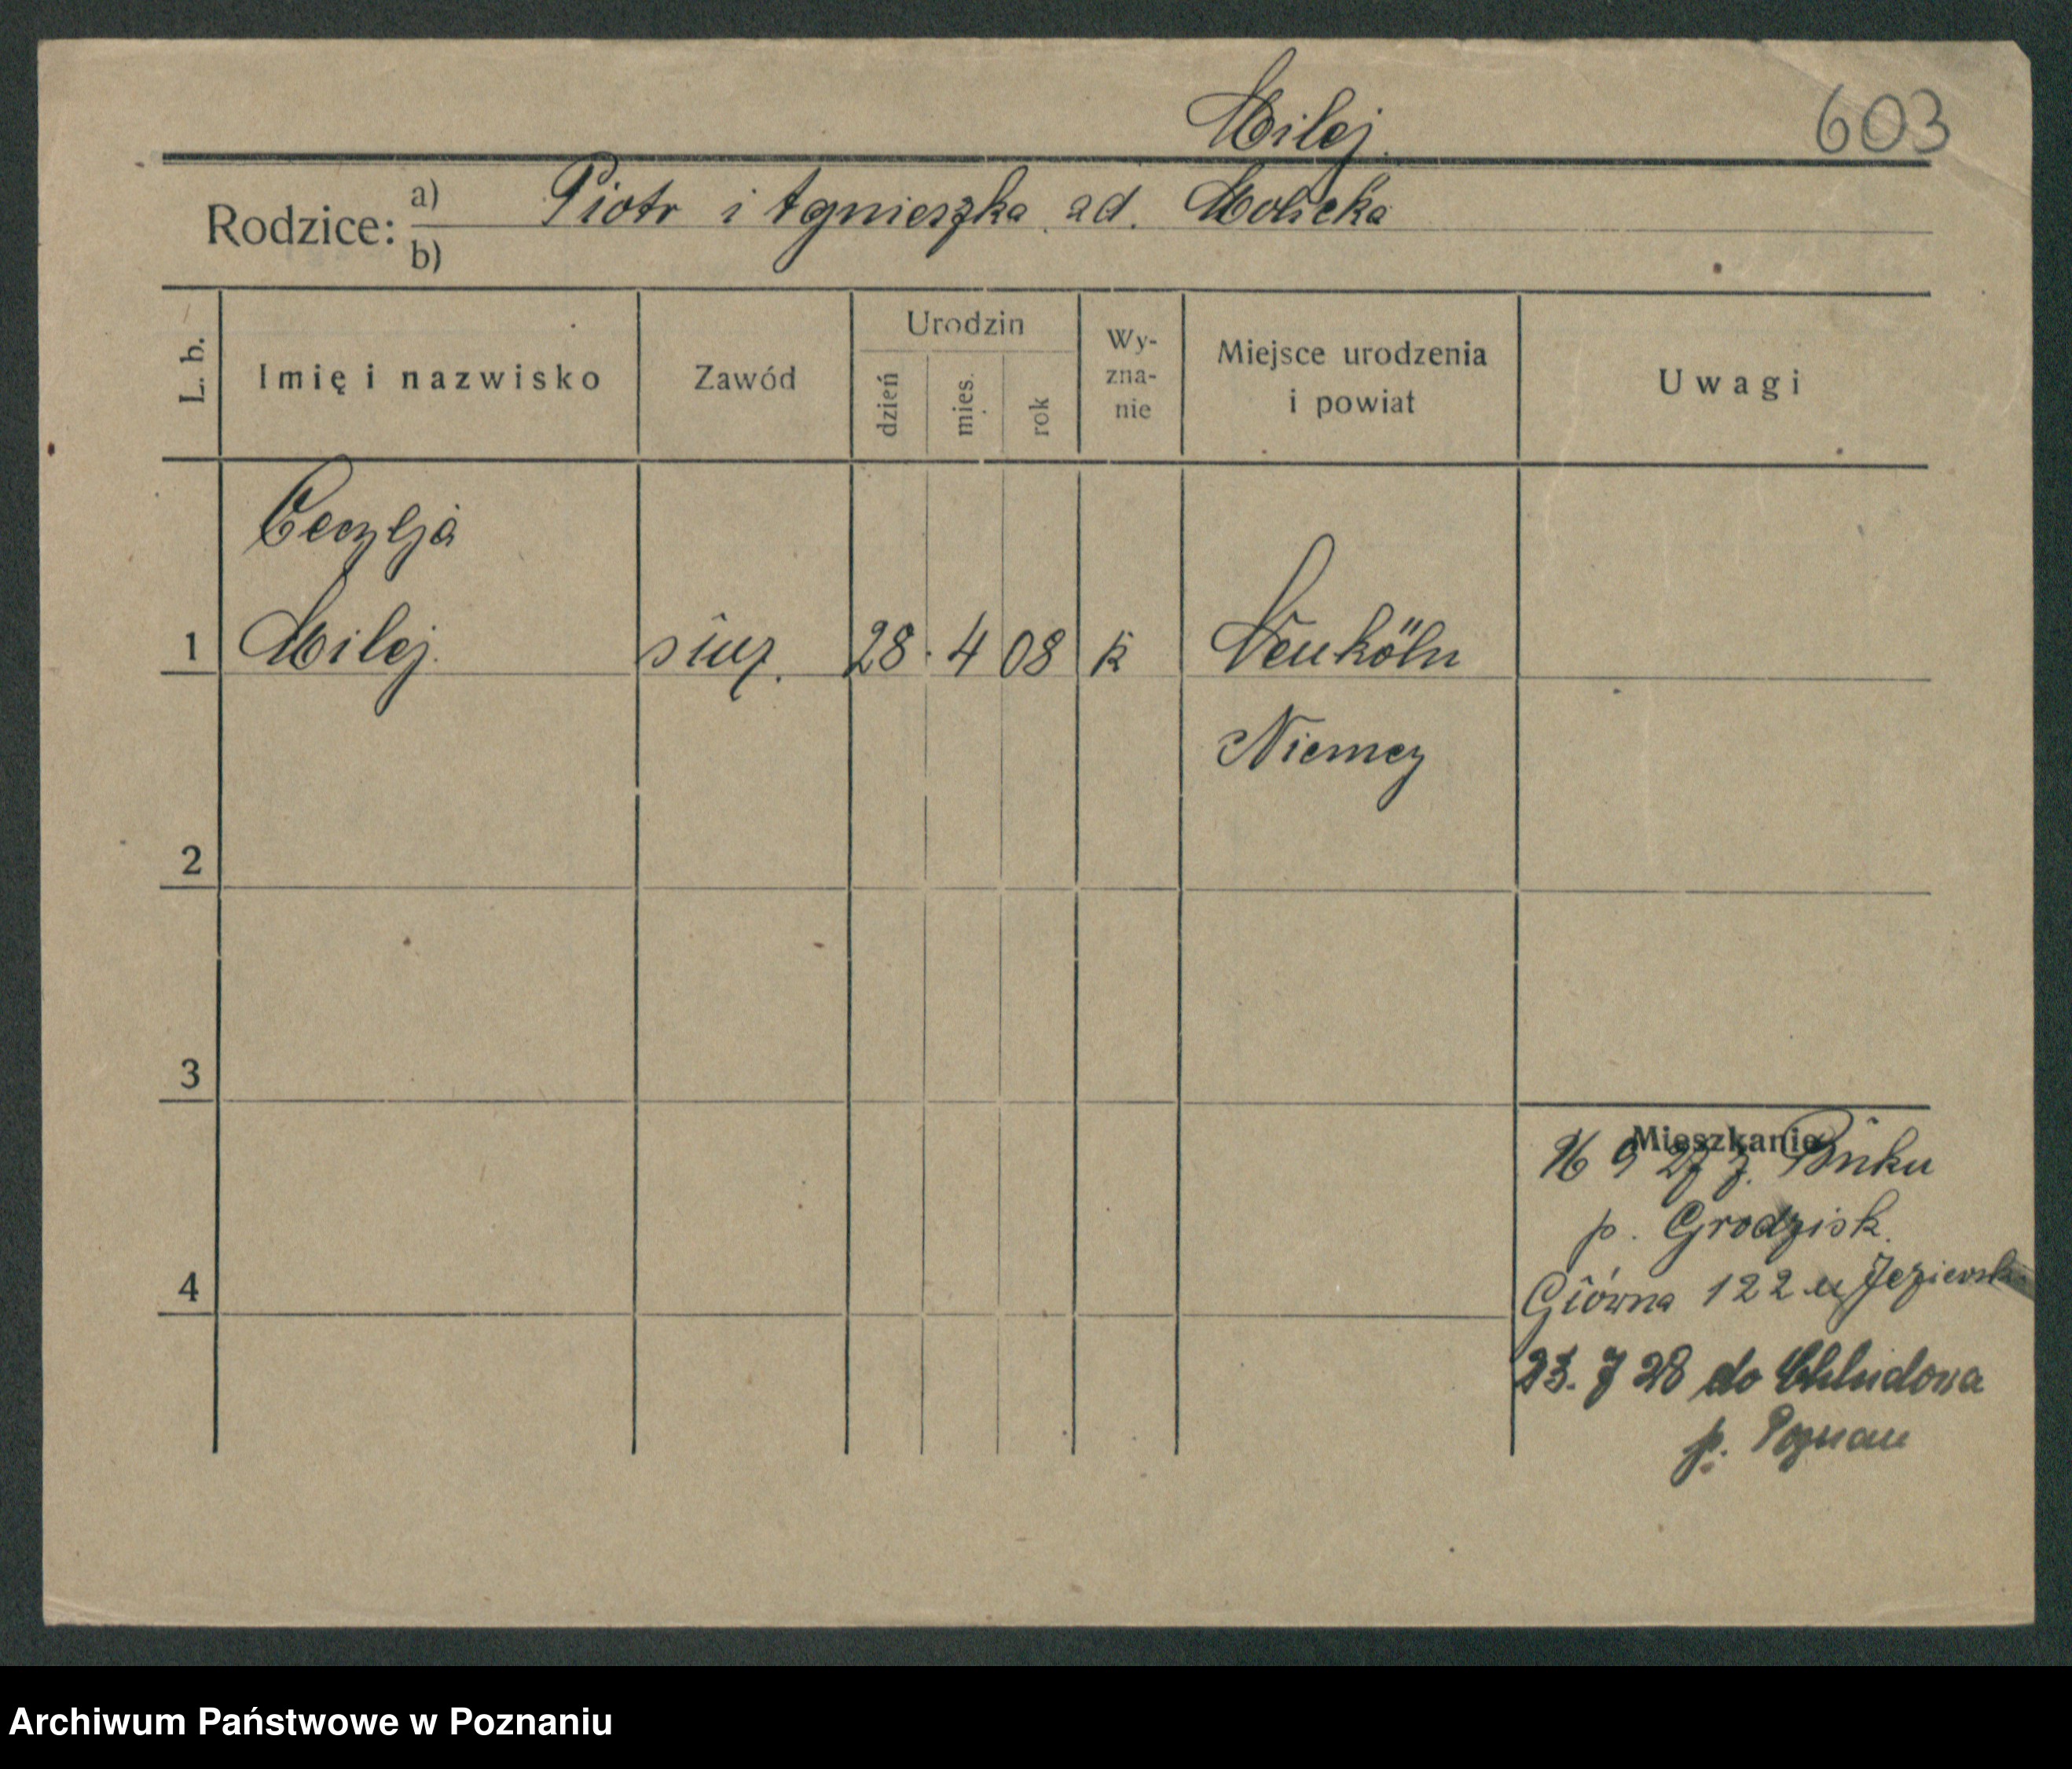 Milej.
603
Rodzice: a) Piotr i Agnieszka ad. Molicka
b)
L. b. Imię i nazwisko Zawód Urodzin dzień mies. rok Wy-zna-nie Miejsce urodzenia i powiat Uwagi
Cecylja
1 Milej. służ. 28. 4 08 k Neuköln
Niemcy
2
3
Mieszkanie
9 27 z. Buku
p. Grodzisk.
4 Główna 122 u
23. 7 28 do Chludowa
p. Poznań
Archiwum Państwowe w Poznaniu